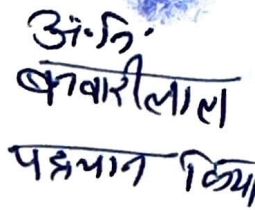 अं.नि.
बनवारीलाल
पहचान किया